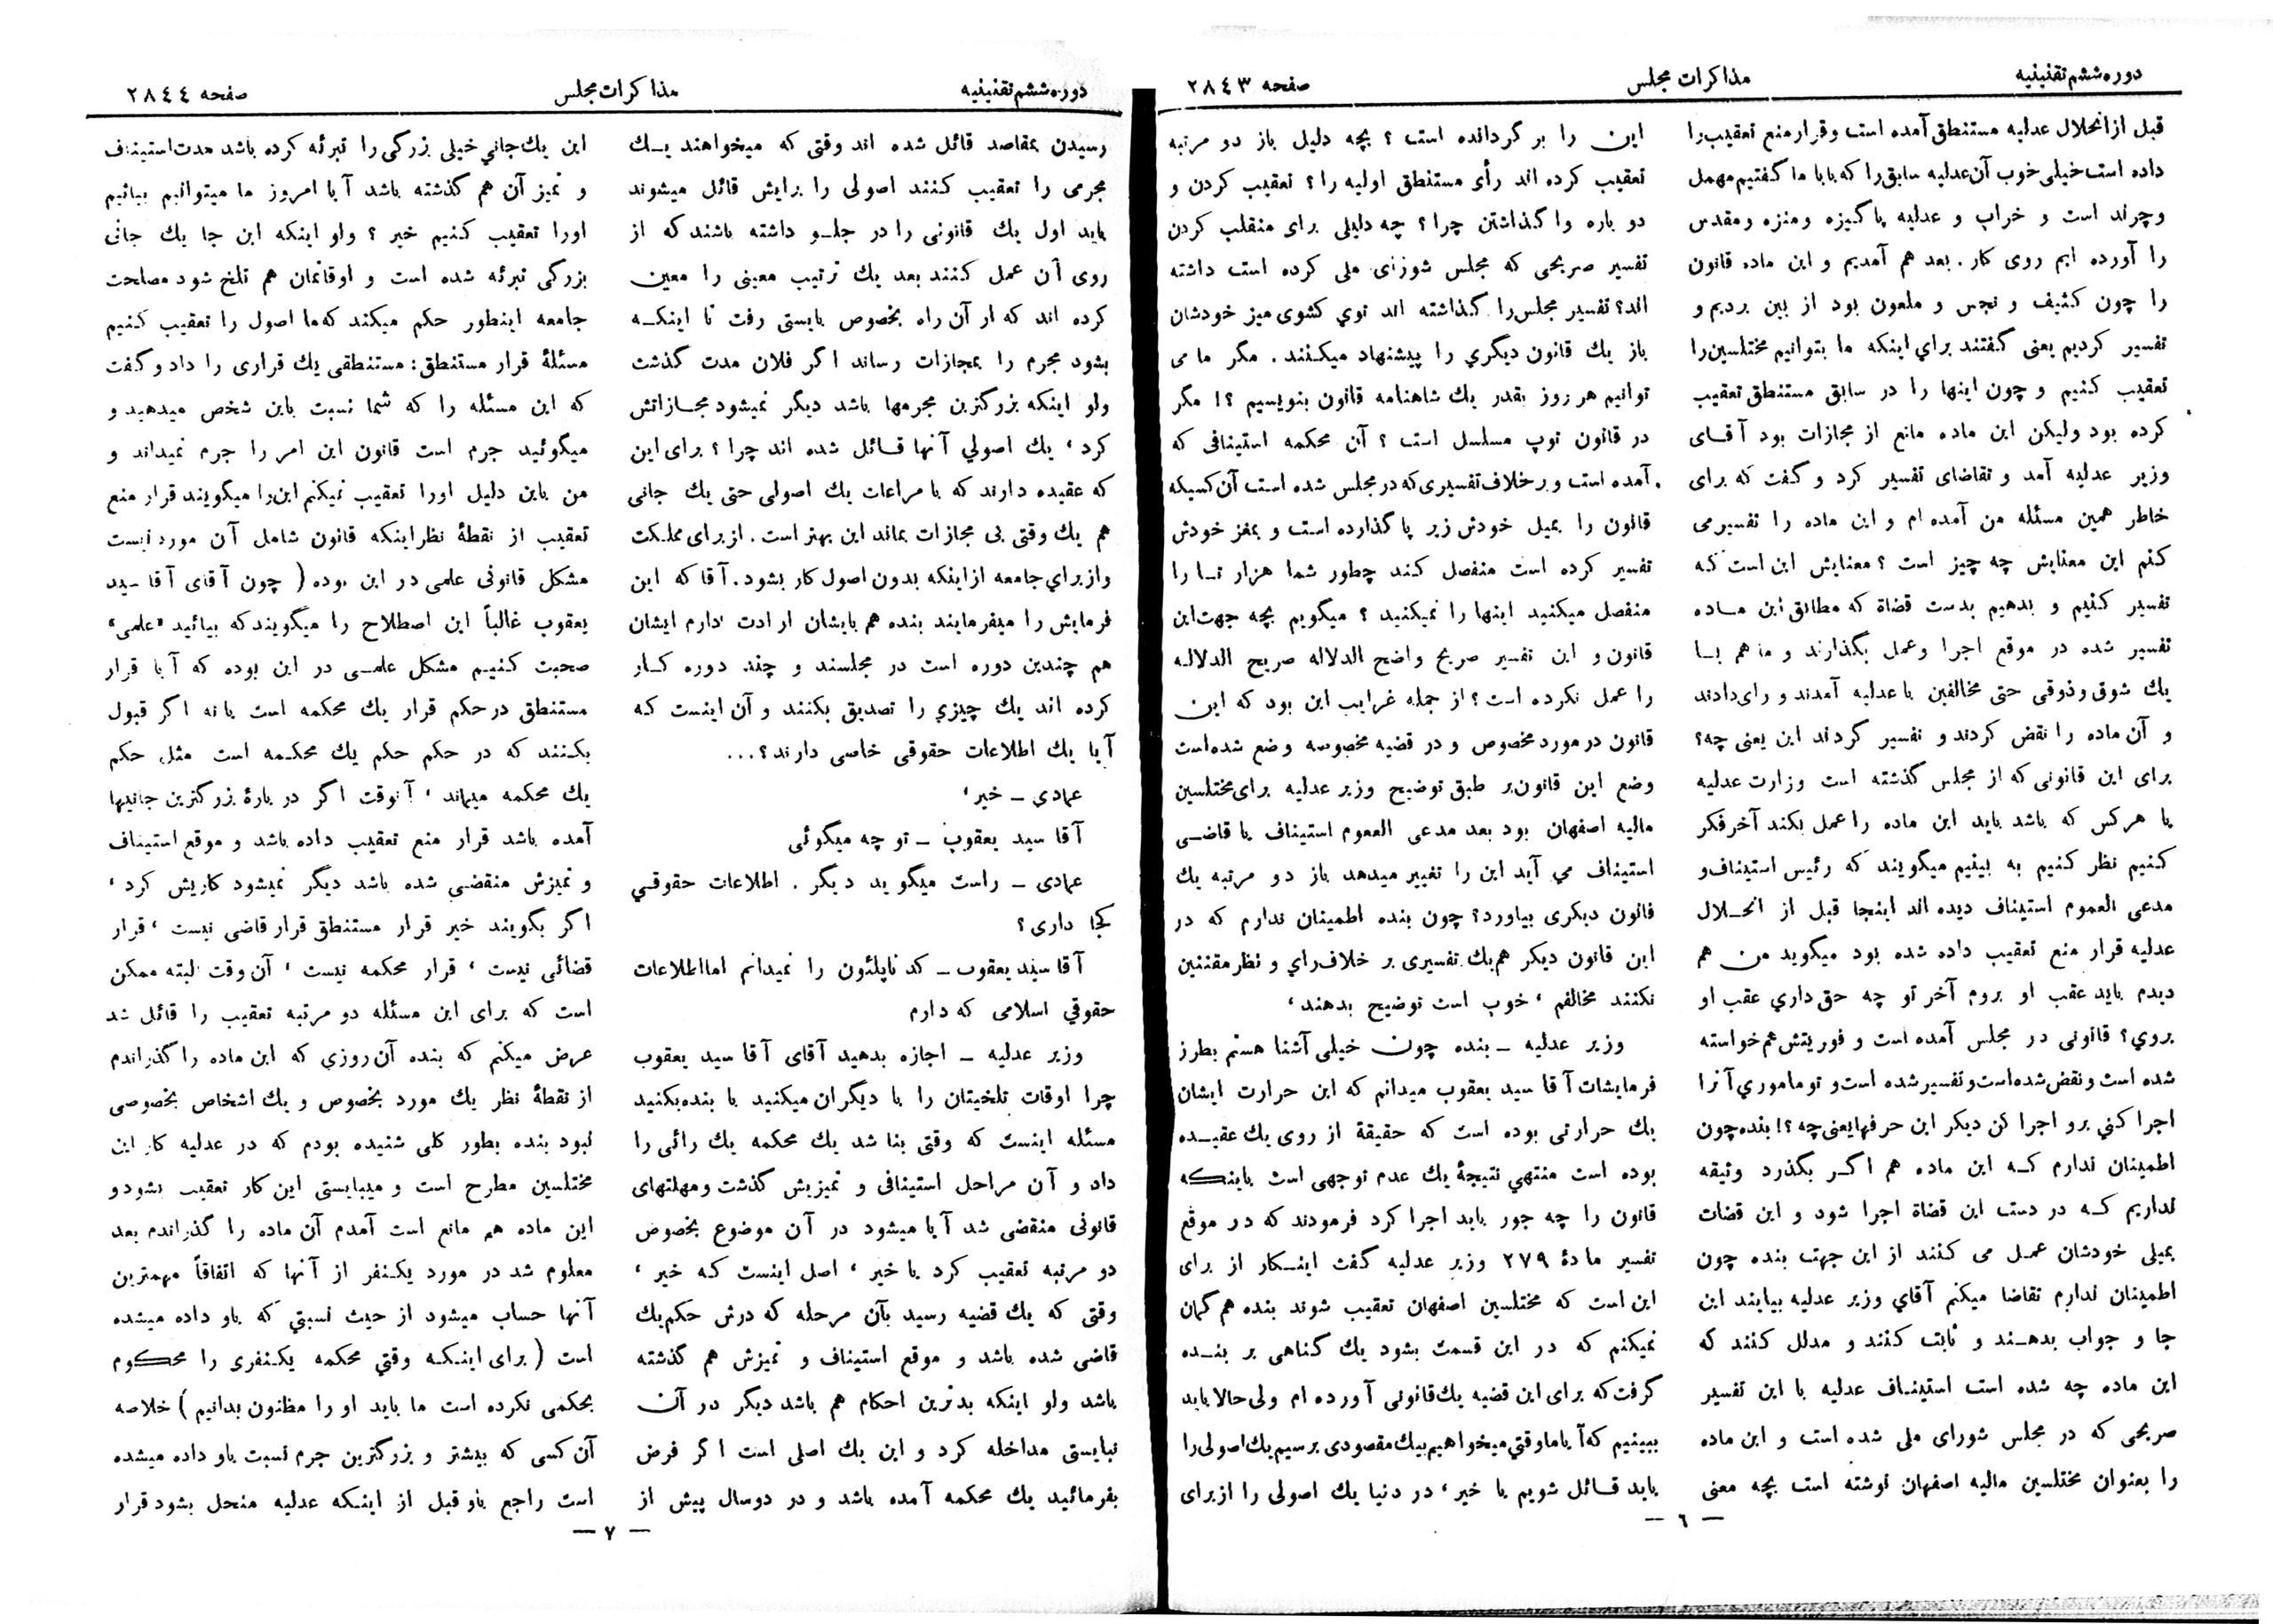 دوره ششم تقنینیه مذاکرات مجلس صفحه ۲۸٤۳
قبل از انحلال عدلیه مستنطق آمده است و قرار منع تعقیب را
داده است خیلی خوب آن عدلیه سابق را که بابا ما گفتیم مهمل
و چرند است و خراب و عدلیه پاکیزه و منزه و مقدس
را آورده ایم روی کار . بعد هم آمدیم و این ماده قانون
را چون کثیف و نجس و ملعون بود از بین بردیم و
تفسیر کردیم یعنی گفتند برای اینکه ما بتوانیم مختلسین را
تعقیب کنیم و چون اینها را در سابق مستنطق تعقیب
کرده بود ولیکن این ماده مانع از مجازات بود آقای
وزیر عدلیه آمد و تقاضای تفسیر کرد و گفت که برای
خاطر همین مسئله من آمده ام و این ماده را تفسیر می
کنم این معنایش چه چیز است ؟ معنایش این است که
تفسیر کنیم و بدهیم بدست قضاة که مطابق این ماده
تفسیر شده در موقع اجرا و عمل بگذارند و ما هم با
یك شوق و ذوقی حتی مخالفین با عدلیه آمدند و رای دادند
و آن ماده را نقض کردند و تفسیر کردند این یعنی چه؟
برای این قانونی که از مجلس گذشته است وزارت عدلیه
یا هرکس که باشد باید این ماده را عمل بکند آخر فکر
کنیم نظر کنیم به بینیم میگویند که رئیس استیناف و
مدعی العموم استیناف دیده اند اینجا قبل از انحلال
عدلیه قرار منع تعقیب داده شده بود میگوید من هم
دیدم باید عقب او بروم آخر تو چه حق داری عقب او
بروی؟ قانونی در مجلس آمده است و فوریتش هم خواسته
شده است و نقض شده است و تفسیر شده است و تو ماموری آنرا
اجرا کنی برو اجرا کن دیگر این حرفها یعنی چه ؟! بنده چون
اطمینان ندارم که این ماده هم اگر بگذرد وثیقه
نداریم که در دست این قضاة اجرا شود و این قضات
بمیلی خودشان عمل می کنند از این جهت بنده چون
اطمینان ندارم تقاضا میکنم آقای وزیر عدلیه بیایند این
جا و جواب بدهند و ثابت کنند و مدلل کنند که
این ماده چه شده است استیناف عدلیه با این تفسیر
صریحی که در مجلس شورای ملی شده است و این ماده
را بعنوان مختلسین مالیه اصفهان نوشته است بچه معنی
این را بر گردانده است ؟ بچه دلیل باز دو مرتبه
تعقیب کرده اند رأی مستنطق اولیه را؟ تعقیب کردن و
دو باره واگذاشتن چرا؟ چه دلیلی برای منقلب کردن
تفسیر صریحی که مجلس شورای ملی کرده است داشته
اند؟ تفسیر مجلس را گذاشته اند توی کشوی میز خودشان
باز یك قانون دیگری را پیشنهاد میکنند . مگر ما می
توانیم هر روز بقدر یك شاهنامه قانون بنویسیم ؟! مگر
در قانون توپ مسلسل است ؟ آن محکمه استینافی که
آمده است و بر خلاف تفسیری که در مجلس شده است آن کسیکه
قانون را بمیل خودش زیر پا گذارده است و بمغز خودش
تفسیر کرده است منفصل کند چطور شما هزار تا را
منفصل میکنید اینها را نمیکنید ؟ میگویم بچه جهت این
قانون و این تفسیر صریح واضح الدلاله صریح الدلاله
را عمل نکرده است؟ از جمله غرایب این بود که این
قانون در مورد مخصوص و در قضیه مخصوصه وضع شده است
وضع این قانون بر طبق توضیح وزیر عدلیه برای مختلسین
مالیه اصفهان بود بعد مدعی العموم استیناف یا قاضی
استیناف می آید این را تغییر میدهد باز دو مرتبه یك
قانون دیگری بیاورد؟ چون بنده اطمینان ندارم که در
این قانون دیگر هم یك تفسیری بر خلاف رای و نظر مقننین
نکنند مخالفم ، خوب است توضیح بدهند ،
وزیر عدلیه ــ بنده چون خیلی آشنا هستم بطرز
فرمایشات آقا سید یعقوب میدانم که این حرارت ایشان
یك حرارتی بوده است که حقیقة از روی یك عقیده
بوده است منتهی نتیجهٔ یك عدم توجهی است باینکه
قانون را چه جور باید اجرا کرد فرمودند که در موقع
تفسیر مادهٔ ۲۷۹ وزیر عدلیه گفت اینکار از برای
این است که مختلسین اصفهان تعقیب شوند بنده هم گمان
نمیکنم که در این قسمت بشود یك گناهی بر بنده
گرفت که برای این قضیه یك قانونی آورده ام ولی حالا باید
ببینیم که آیا ما وقتی میخواهیم بیك مقصودی برسیم یك اصولی را
باید قائل شویم یا خیر ، در دنیا یك اصولی را از برای
— ٦ —
دوره ششم تقنینیه مذاکرات مجلس صفحه ۲۸٤٤
رسیدن بمقاصد قائل شده اند وقتی که میخواهند یك
مجرمی را تعقیب کنند اصولی را برایش قائل میشوند
باید اول یك قانونی را در جلو داشته باشند که از
روی آن عمل کنند بعد یك ترتیب معینی را معین
کرده اند که از آن راه بخصوص بایستی رفت تا اینکه
بشود مجرم را بمجازات رساند اگر فلان مدت گذشت
ولو اینکه بزرگترین مجرمها باشد دیگر نمیشود مجازاتش
کرد ، یك اصولی آنها قائل شده اند چرا ؟ برای این
که عقیده دارند که با مراعات یك اصولی حتی یك جانی
هم یك وقتی بی مجازات بماند این بهتر است . از برای مملکت
و از برای جامعه از اینکه بدون اصول کار بشود . آقا که این
فرمایش را میفرمایند بنده هم بایشان ارادت دارم ایشان
هم چندین دوره است در مجلسند و چند دوره کار
کرده اند یك چیزی را تصدیق بکنند و آن اینست که
آیا یك اطلاعات حقوقی خاصی دارند ؟ ...
عمادی ــ خیر ،
آقا سید یعقوب ــ تو چه میگوئی
عمادی ــ راست میگوید دیگر . اطلاعات حقوقی
کجا داری ؟
آقا سید یعقوب ــ کد ناپلئون را نمیدانم اما اطلاعات
حقوقی اسلامی که دارم
وزیر عدلیه ــ اجازه بدهید آقای آقا سید یعقوب
چرا اوقات تلخیتان را با دیگران میکنید با بنده بکنید
مسئله اینست که وقتی بنا شد یك محکمه یك رائی را
داد و آن مراحل استینافی و تمیزیش گذشت و مهلتهای
قانونی منقضی شد آیا میشود در آن موضوع بخصوص
دو مرتبه تعقیب کرد یا خیر ، اصل اینست که خیر ،
وقتی که یك قضیه رسید بآن مرحله که درش حکم یك
قاضی شده باشد و موقع استیناف و تمیزش هم گذشته
باشد ولو اینکه بدترین احکام هم باشد دیگر در آن
نبایستی مداخله کرد و این یك اصلی است اگر فرض
بفرمائید یك محکمه آمده باشد و در دو سال پیش از
این یك جانی خیلی بزرگی را تبرئه کرده باشد مدت استیناف
و تمیز آن هم گذشته باشد آیا امروز ما میتوانیم بیائیم
اورا تعقیب کنیم خیر ؟ ولو اینکه این جا یك جانی
بزرگی تبرئه شده است و اوقاتمان هم تلخ شود مصلحت
جامعه اینطور حکم میکند که ما اصول را تعقیب کنیم
مسئلهٔ قرار مستنطق : مستنطقی یك قراری را داد و گفت
که این مسئله را که شما نسبت باین شخص میدهید و
میگوئید جرم است قانون این امر را جرم نمیداند و
من باین دلیل اورا تعقیب نمیکنم این را میگویند قرار منع
تعقیب از نقطهٔ نظر اینکه قانون شامل آن مورد نیست
مشکل قانونی علمی در این بوده ( چون آقای آقا سید
یعقوب غالباً این اصطلاح را میگویند که بیائید «علمی»
صحبت کنیم مشکل علمی در این بوده که آیا قرار
مستنطق در حکم قرار یك محکمه است یا نه اگر قبول
بکنند که در حکم حکم یك محکمه است مثل حکم
یك محکمه میماند ، آنوقت اگر در بارهٔ بزرگترین جانیها
آمده باشد قرار منع تعقیب داده باشد و موقع استیناف
و تمیزش منقضی شده باشد دیگر نمیشود کاریش کرد ،
اگر بگویند خیر قرار مستنطق قرار قاضی نیست ، قرار
قضائی نیست ، قرار محکمه نیست ، آن وقت البته ممکن
است که برای این مسئله دو مرتبه تعقیب را قائل شد
عرض میکنم که بنده آن روزی که این ماده را گذراندم
از نقطهٔ نظر یك مورد بخصوص و یك اشخاص بخصوصی
نبود بنده بطور کلی شنیده بودم که در عدلیه کار این
مختلسین مطرح است و میبایستی این کار تعقیب بشود و
این ماده هم مانع است آمدم آن ماده را گذراندم بعد
معلوم شد در مورد یکنفر از آنها که اتفاقاً مهمترین
آنها حساب میشود از حیث نسبتی که باو داده میشده
است ( برای اینکه وقتی محکمه یکنفری را محکوم
بحکمی نکرده است ما باید او را مظنون بدانیم ) خلاصه
آن کسی که بیشتر و بزرگترین جرم نسبت باو داده میشده
است راجع باو قبل از اینکه عدلیه منحل بشود قرار
— ۷ —